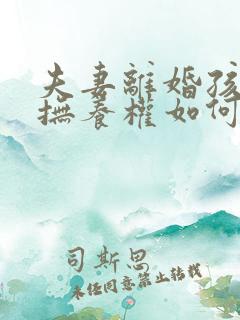 夫妻離婚孩
撫養權如何
司斯思
未经同意禁止转载